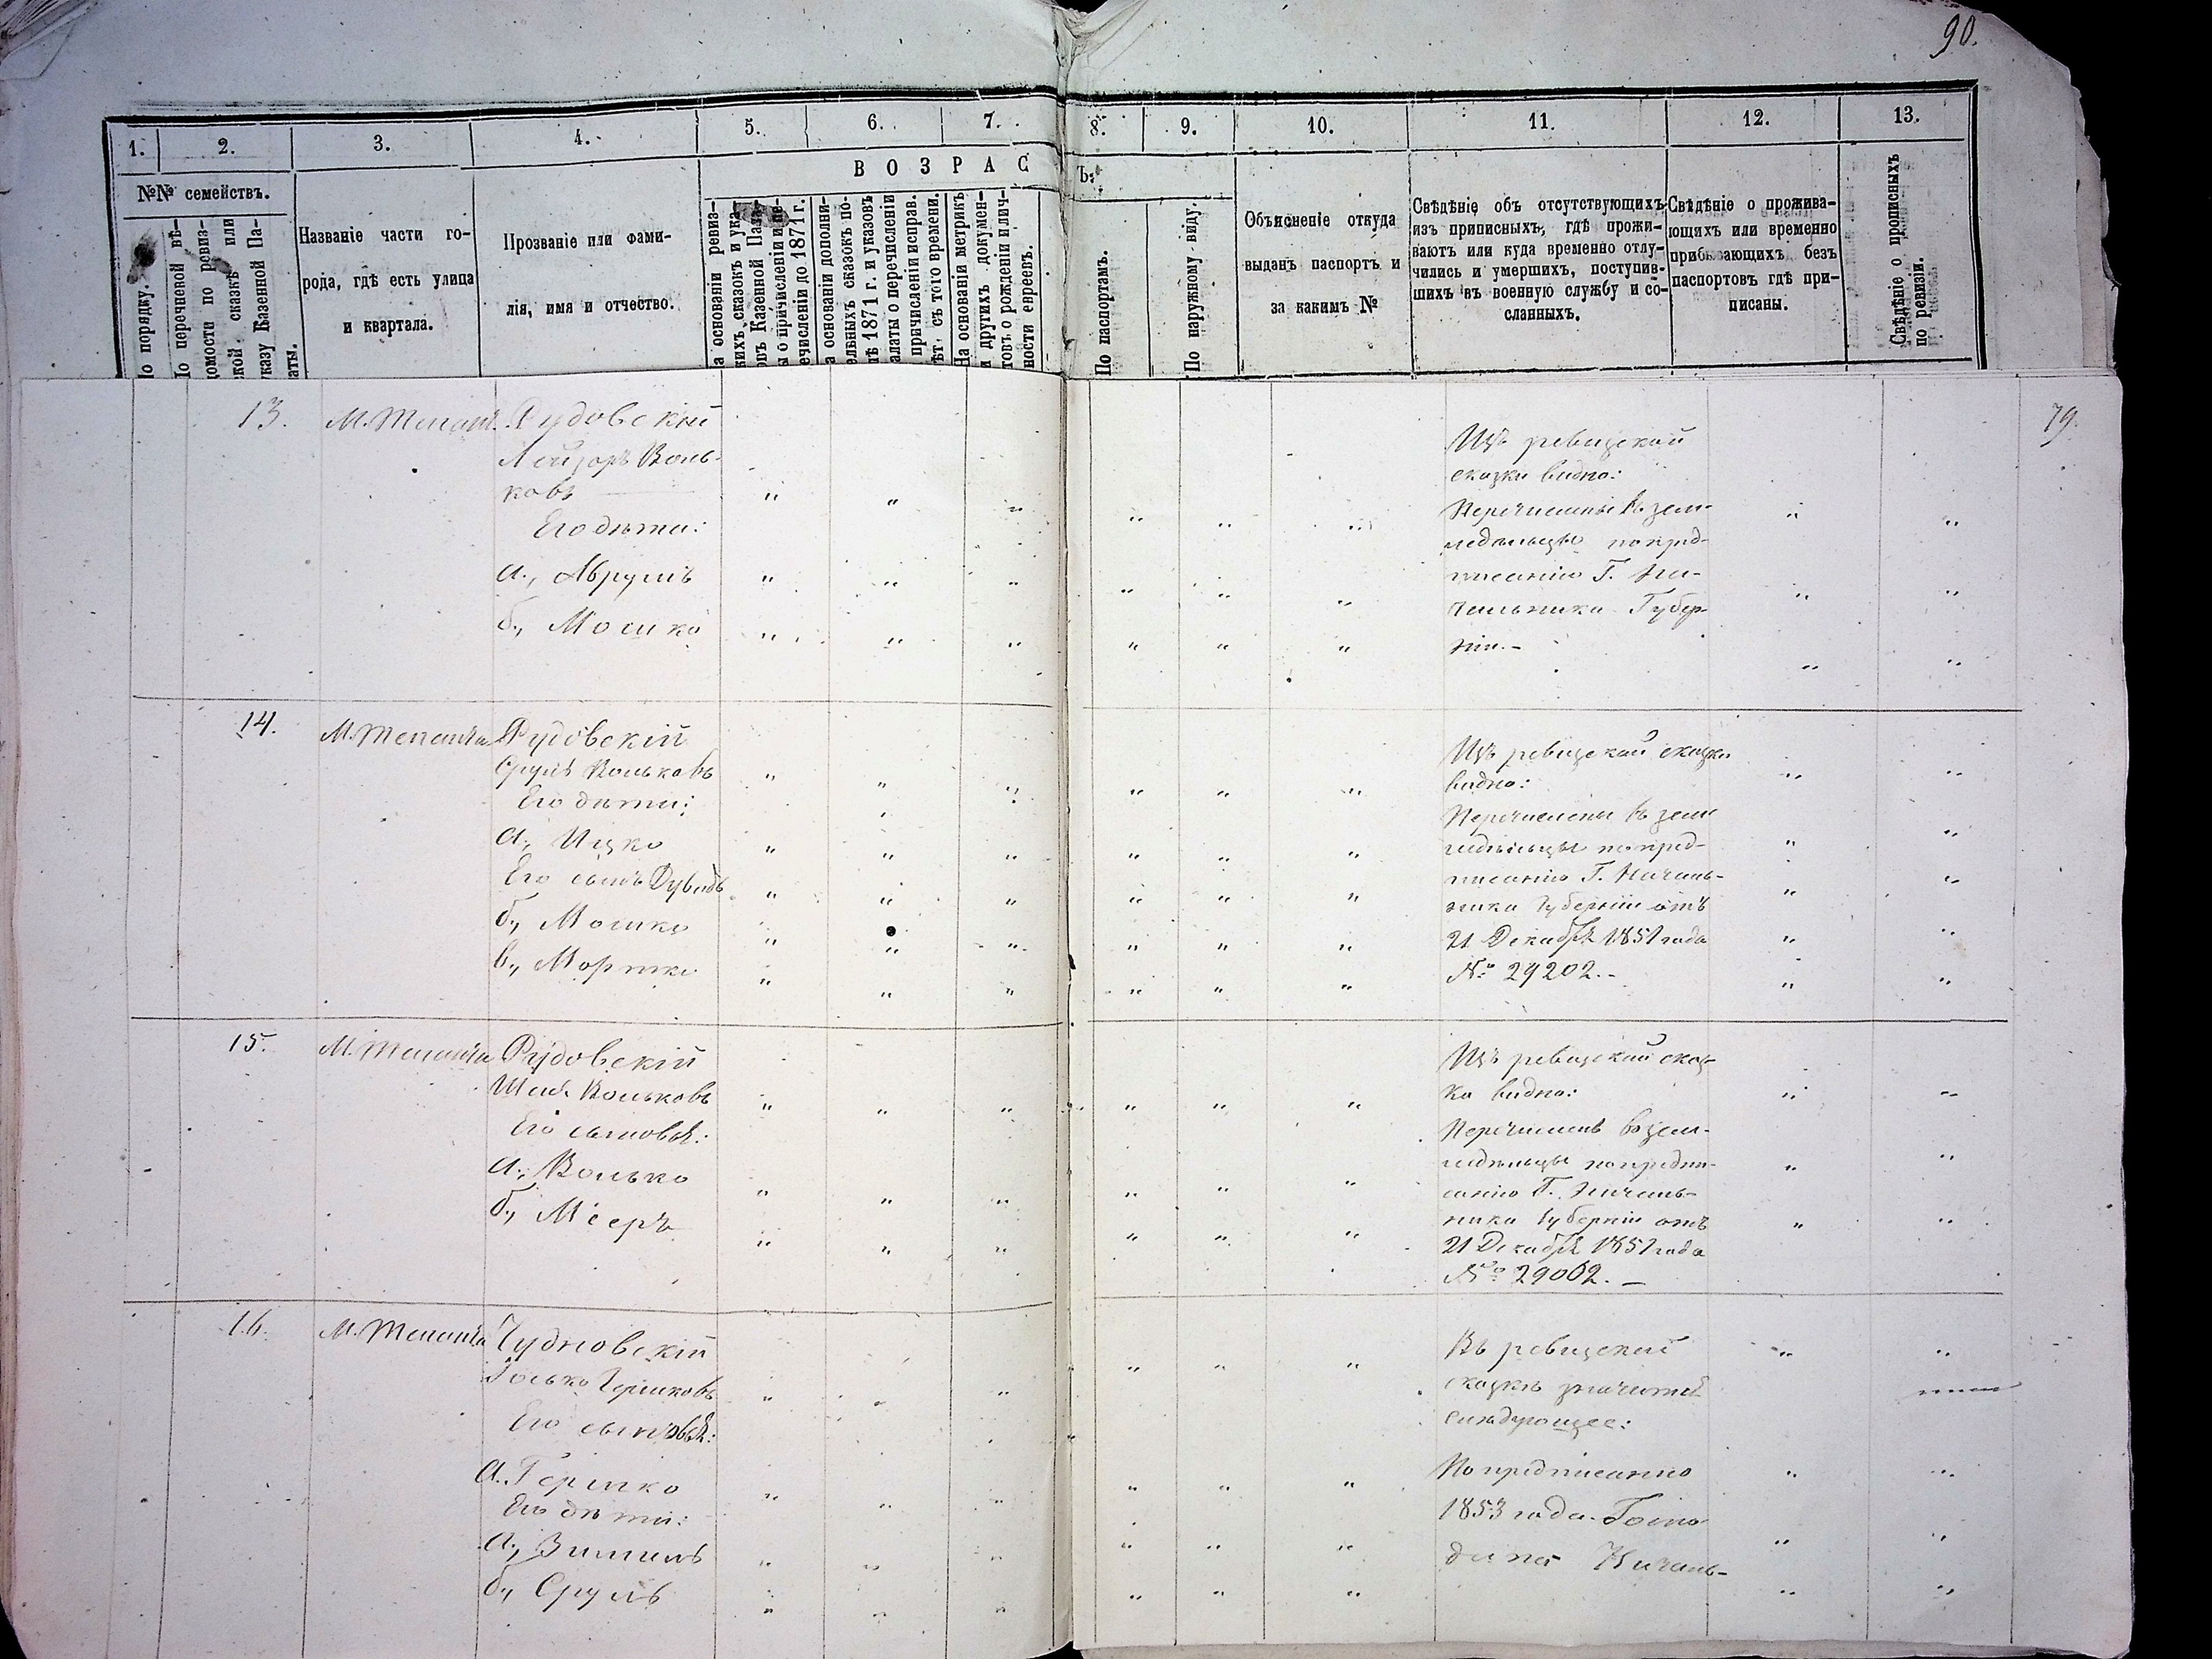 90.
1. 2. 3. 4. 5. 6. 7. 8. 9. 10. 11. 12. 13.
ВОЗРАСТЪ.
№№ семействъ.
По порядку.
По перечновой вѣ-
домости по ревиз-
ской сказкѣ или
указу Казенной Па-
латы.
Названіе части го-
рода, гдѣ есть улица
и квартала.
Прозваніе или фами-
лія, имя и отчество.
На основаніи метрикъ
и другихъ докумен-
товъ о рожденіи и лич-
ности евреевъ.
По паспортамъ.
По наружному виду.
Объясненіе откуда
выданъ паспортъ и
за какимъ №
Свѣдѣніе объ отсутствующихъ
изъ приписныхъ, гдѣ прожи-
ваютъ или куда временно отлу-
чились и умершихъ, поступив-
шихъ въ военную службу и со-
сланныхъ.
Свѣдѣніе о прожива-
ющихъ или временно
прибывающихъ безъ
паспортовъ гдѣ при-
писаны.
Свѣдѣніе о прописныхъ
по ревизіи.
79.
13.
Рудовскій
Лейзоръ Воль-
ковъ
Его дѣти:
а., Аврумъ
б., Мошко
Изъ ревизской
сказки видно:
Перечислены въ зем-
ледѣльцы по пред-
писанію Г. На-
чальника Губер-
ніи.-
14.
Рудовскій
Сруль Вольковъ
Его дѣти:
а., Ицко
Его сынъ Дувидъ
б., Мошко
в., Мортко
Изъ ревизской сказки
видно:
Перечислены въ зем
ледѣльцы по пред-
писанію Г. Началь-
ника Губерніи отъ
21 Декабря 1851 года
№ 29202.-
15.
Рудовскій
Шая Вольковъ
Его сыновья:
а., Волько
б., Мееръ
Изъ ревизской сказ-
ки видно:
Перечислены въ зем-
ледѣльцы по предпи-
санію Г. Началь-
ника Губерніи отъ
21 Декабря 1851 года
№ 29002.-
16.
Чудновскій
Іосько Гершковъ
Его сыновья:
а. Гершко
Его дѣти:
а., Зимель
б., Сруль
Въ ревизской
сказкѣ значится
слѣдующее:
По предписанію
1853 года Госпо
дина Началь-